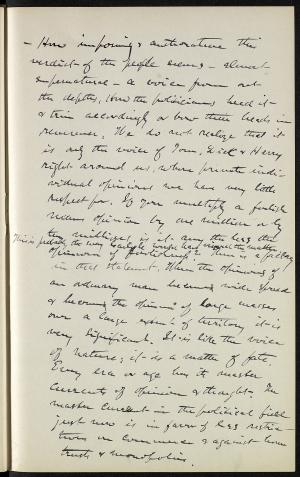 - How imposing & authorative this
verdict of the people seems - almost
supernatural - a voice from out
the depths, How the politicians heed it -
& trim accordingly or bow their heads in
reverence. We do not realize that it
is only the voice of Tom, Dick & Harry
right around us, whose private indi-
vidual opinions we have very little
respect for. If you multiply a foolish
man's opinion by one million or by
ten millions is it any the less the
This is probably the way Carlyle would have viewed the matter
opinion of foolishness? There is a fallacy
in that statement. When the opinions of
an ordinary man become wide spread
& become the opinion of large masses
over a large extent of territory it is
very significant. It is like the voice
of nature; it is a matter of fate.
Every era or age has its master
currents of opinion & thought. The
master current in the political field
just now is in favor of less restric-
tions on commerce & against
trusts & monopolies.